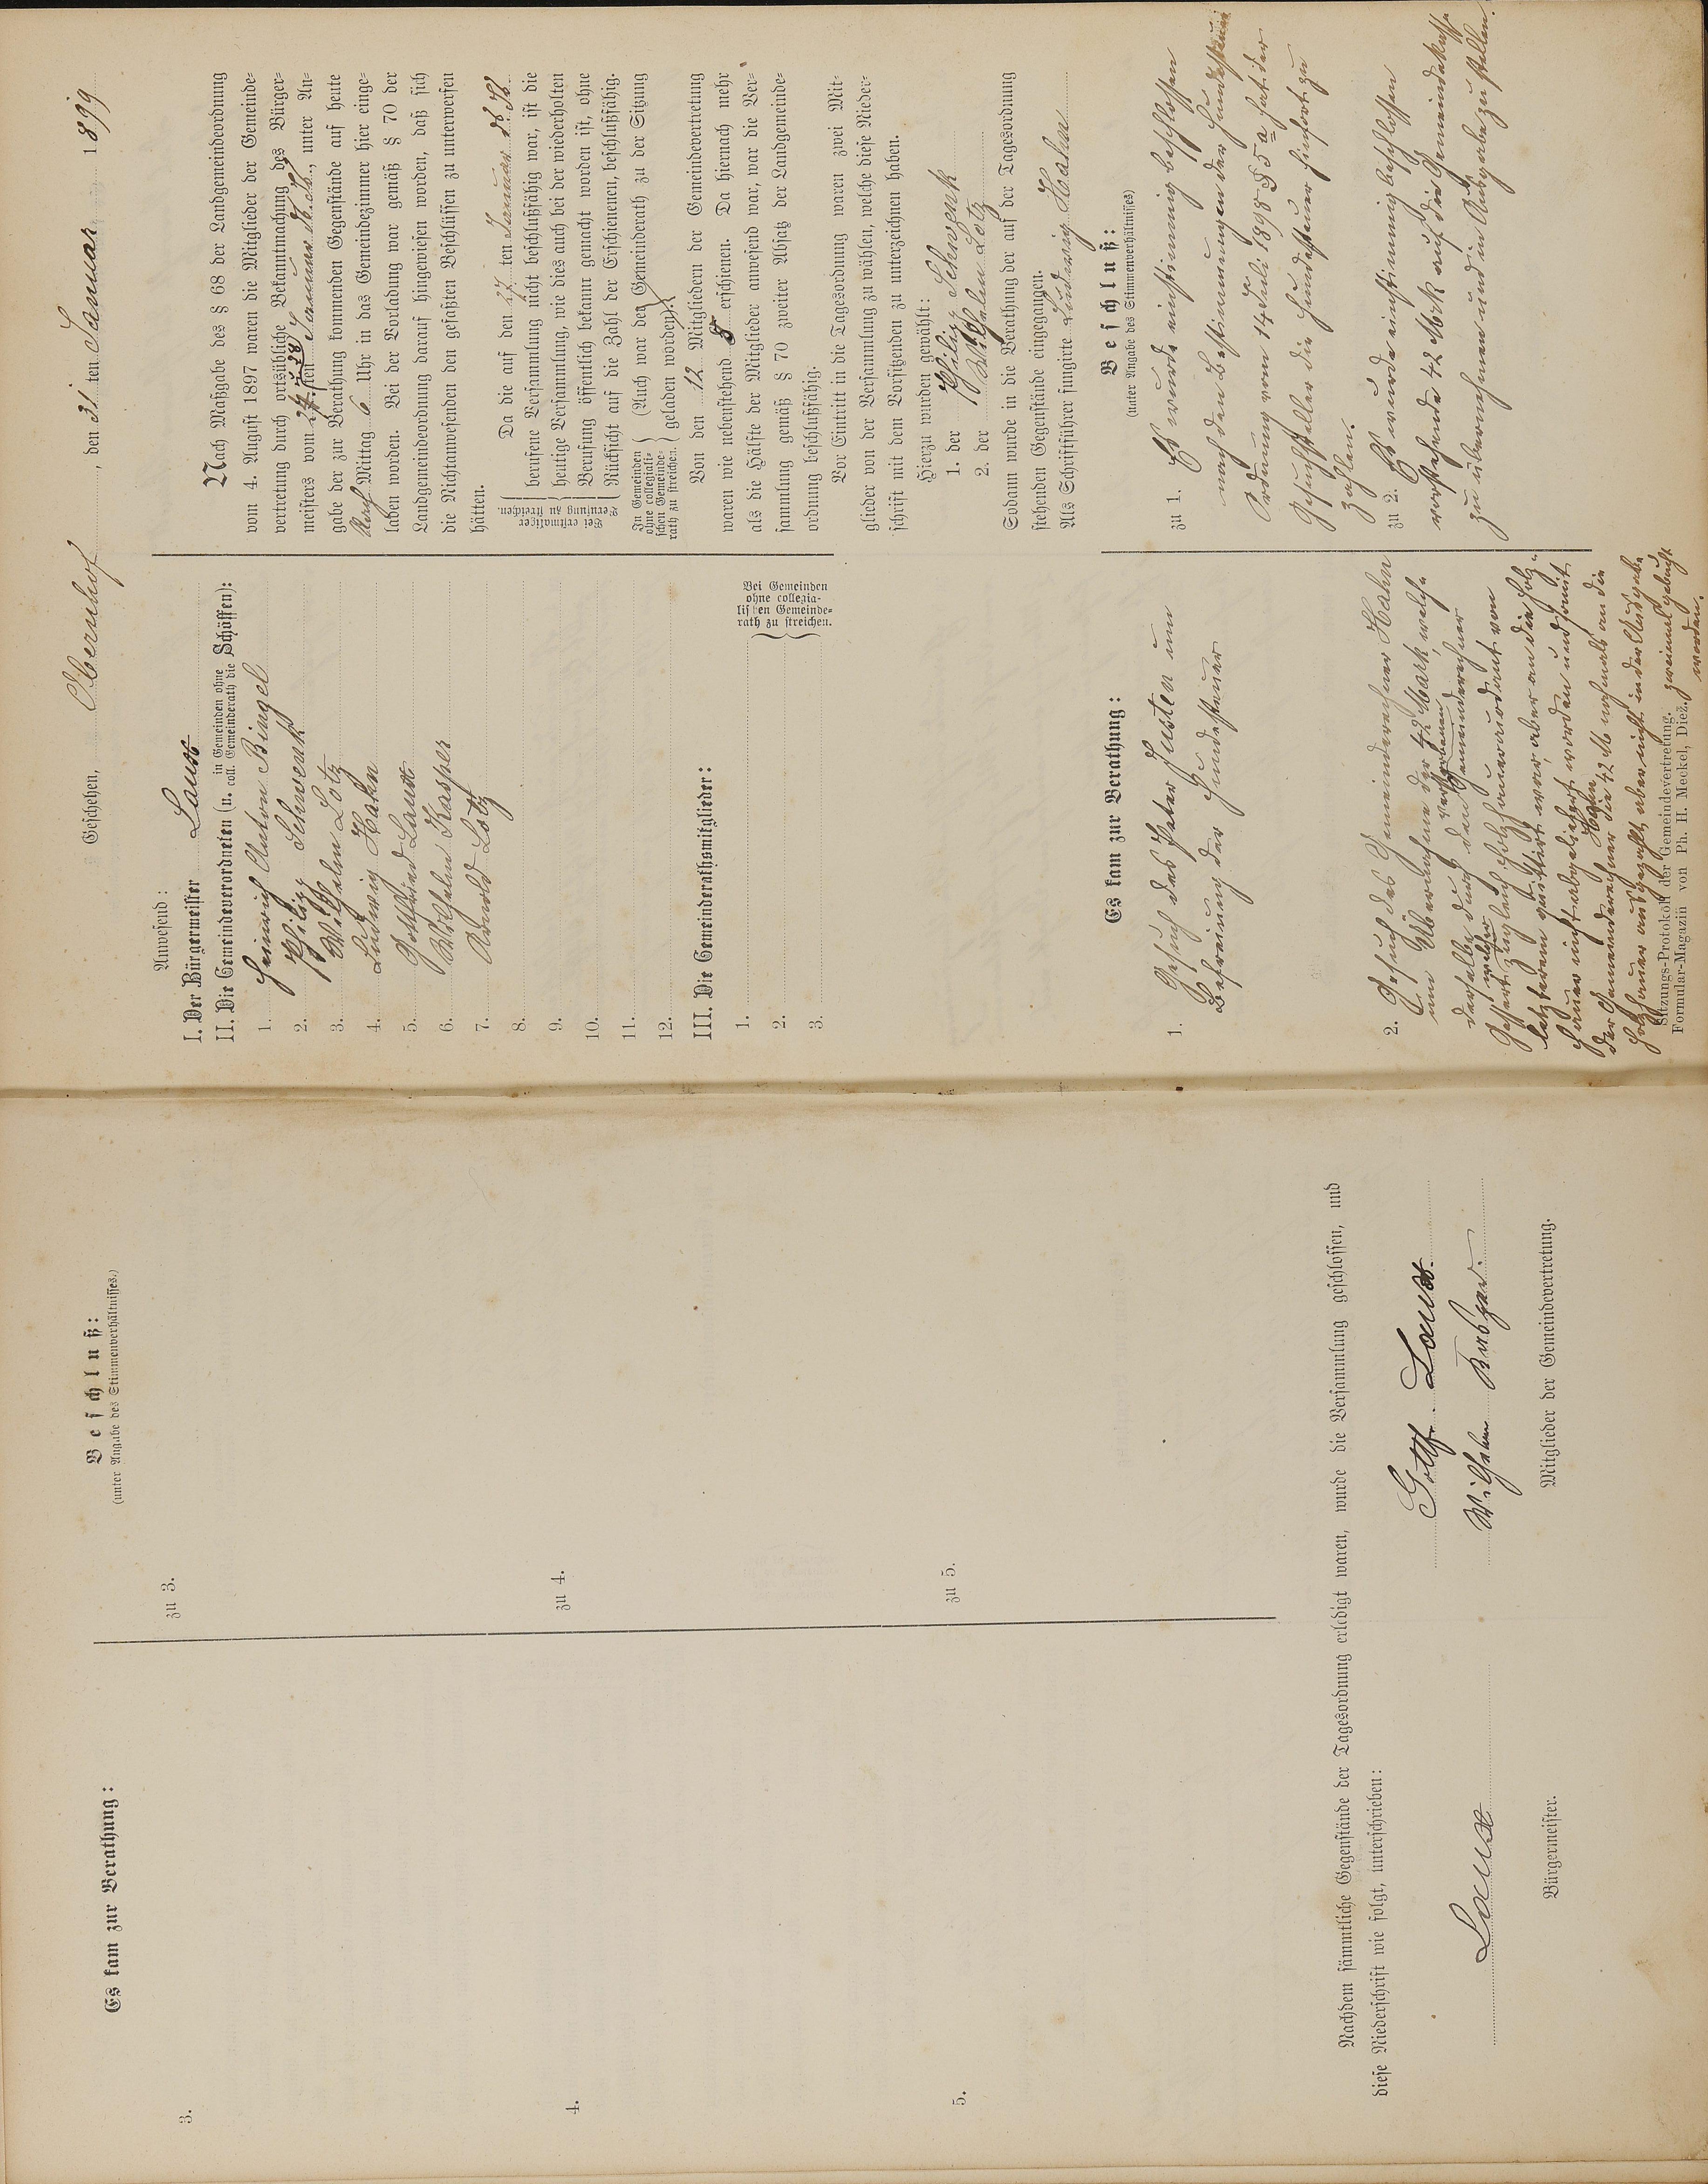 Geschehen, Obernhof, den 31ten Januar 1899
Anwesend:
I. Der Bürgermeister Laux
II. Die Gemeindeverordneten (u. in Gemeinden ohne coll. Gemeinderath die Schöffen):
1. Heinrich Anton Bingel
2. Philipp Schwenk
3. Wilhelm Lotz
4. Ludwig Hahn
5. Gottfried Laux
6. Wilhelm Kasper
7. Arnold Lotz
8.
9.
10.
11.
12.
III. Die Gemeinderathsmitglieder:
1.
2.
3.
Bei Gemeinden
ohne collegia-
lischen Gemeinde-
rath zu streichen.
Nach Maßgabe des § 68 der Landgemeindeordnung
vom 4. August 1897 waren die Mitglieder der Gemeinde-
vertretung durch ortsübliche Bekanntmachung des Bürger-
meisters vom 28 Januar d. Js., unter An-
gabe der zur Berathung kommenden Gegenstände auf heute
Nach Mittag 6 Uhr in das Gemeindezimmer hier einge-
laden worden. Bei der Vorladung war gemäß § 70 der
Landgemeindeordnung darauf hingewiesen worden, daß sich
die Nichtanwesenden den gefaßten Beschlüssen zu unterwerfen
hätten.
Bei erstmaliger
Berufung zu streichen.
Da die auf den 27ten Januar d. Js.
berufene Versammlung nicht beschlußfähig war, ist die
heutige Versammlung, wie dies auch bei der wiederholten
Berufung öffentlich bekannt gemacht worden ist, ohne
Rücksicht auf die Zahl der Erschienenen, beschlußfähig.
In Gemeinden
ohne collegiali-
schen Gemeinde-
rath zu streichen.
(Auch war der Gemeinderath zu der Sitzung
geladen worden).
Von den 12 Mitgliedern der Gemeindevertretung
waren wie nebenstehend 8 erschienen. Da hiernach mehr
als die Hälfte der Mitglieder anwesend war, war die Ver-
sammlung gemäß § 70 zweiter Absatz der Landgemeinde-
ordnung beschlußfähig.
Vor Eintritt in die Tagesordnung waren zwei Mit-
glieder von der Versammlung zu wählen, welche diese Nieder-
schrift mit dem Vorsitzenden zu unterzeichnen haben.
Hierzu wurden gewählt:
1. der Philipp Schwenk
2. der Wilhelm Lotz
Sodann wurde in die Berathung der auf der Tagesordnung
stehenden Gegenstände eingegangen.
Als Schriftführer fungirte Ludwig Hahn
Es kam zur Berathung:
1. Gesuch des Peter Justen um
Befreiung der Hundesteuer
2. Gesuch des Gemeinderechner Hahn
um Übernahme der 42 Mark, welche
derselbe durch den verstorbenen Gemeinderechner
Gessert, welcher zugleich Holzhauer war von
letzterem quittirt war, aber an die Holz-
hauer nicht abgeliefert worden und somit
der Gemeinderechner Hahn die 42 M nochmals an die
Holzhauer ausgezahlt, aber nicht in der Ausgabe
zweimal gebucht
worden.
Beschluß:
(unter Angabe des Stimmenverhältnisses)
zu 1. Es wurde einstimmig beschlossen
nach den Bestimmungen der Hundesteuer
Ordnung vom 14 Juli 1898 § 5 a hat der
Gesuchsteller die Hundesteuer hierfort zu
zahlen.
zu 2. Es wurde einstimmig beschlossen
vorstehende 42 Mrk auf die Gemeindekasse
zu übernehmen und in Ausgabe zu stellen.
Sitzungs-Protokoll der Gemeindevertretung.
Formular-Magazin von Ph. H. Meckel, Diez.
Es kam zur Berathung:
3.
4.
5.
Beschluß:
(unter Angabe des Stimmenverhältnisses.)
zu 3.
zu 4.
zu 5.
Nachdem sämmtliche Gegenstände der Tagesordnung erledigt waren, wurde die Versammlung geschlossen, und
diese Niederschrift wie folgt, unterschrieben:
Laux
Bürgermeister.
Gottf. Laux.
Wilhelm Kasper.
Mitglieder der Gemeindevertretung.